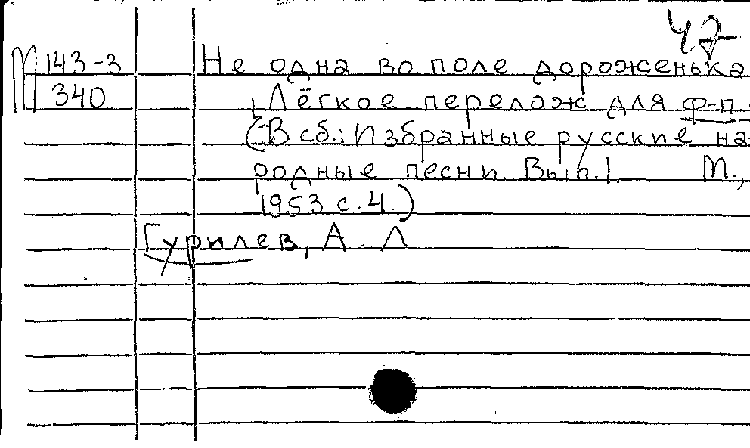 47
М 143-3
340
Не одна во поле дороженька
Лёгкое перелож для ф-п.
(В сб.: Избранные русские на
родные песни. Вып. 1. М.,
1953 с. 4.)
Гурилев, А Л